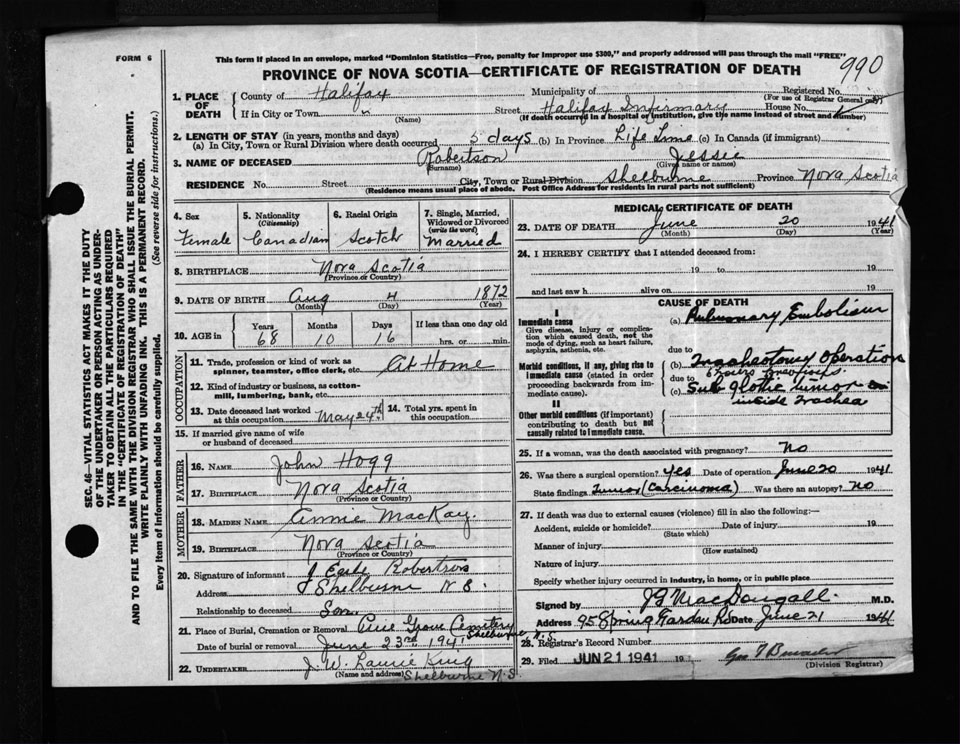 FORM 6
This form if placed in an envelope, marked "Dominion Statistics—Free, penalty for improper use $300," and properly addressed will pass through the mail "FREE"
PROVINCE OF NOVA SCOTIA—CERTIFICATE OF REGISTRATION OF DEATH
990
1. PLACE OF DEATH
County of Halifax Municipality of Registered No.
(For use of Registrar General only)
If in City or Town " Street Halifax Infirmary House No.
(Name) (If death occurred in a hospital or institution, give the name instead of street and number)
2. LENGTH OF STAY (in years, months and days)
(a) In City, Town or Rural Division where death occurred 5 days (b) In Province Life time (c) In Canada (if immigrant)
3. NAME OF DECEASED Robertson Jessie
(Surname) (Given name or names)
RESIDENCE No. Street City, Town or Rural Division Shelburne Province Nova Scotia
(Residence means usual place of abode. Post Office Address for residents in rural parts not sufficient)
4. Sex
Female
5. Nationality
(Citizenship)
Canadian
6. Racial Origin
Scotch
7. Single, Married, Widowed or Divorced
(write the word)
Married
8. BIRTHPLACE Nova Scotia
(Province or Country)
9. DATE OF BIRTH Aug 4 1872
(Month) (Day) (Year)
10. AGE in Years 68 Months 10 Days 16 If less than one day old
hrs. or min.
OCCUPATION
11. Trade, profession or kind of work as spinner, teamster, office clerk, etc. At Home
12. Kind of industry or business, as cotton-mill, lumbering, bank, etc.
13. Date deceased last worked at this occupation May 24th
14. Total yrs. spent in this occupation
15. If married give name of wife or husband of deceased
FATHER
16. NAME John Hogg
17. BIRTHPLACE Nova Scotia
MOTHER
18. MAIDEN NAME Annie MacKay.
19. BIRTHPLACE Nova Scotia
(Province or Country)
20. Signature of informant J Earle Robertson
Address Shelburne N S.
Relationship to deceased Son
21. Place of Burial, Cremation or Removal Pine Grove Cemetery
Shelburne N.S.
Date of burial or removal June 23rd 1941
22. UNDERTAKER J. W. Laurie King
(Name and address) Shelburne N.S.
MEDICAL CERTIFICATE OF DEATH
23. DATE OF DEATH June 20 1941
(Month) (Day) (Year)
24. I HEREBY CERTIFY that I attended deceased from:
19 to 19
and last saw h alive on 19
CAUSE OF DEATH
I
Immediate cause
Give disease, injury or complication which caused death, not the mode of dying, such as heart failure, asphyxia, asthenia, etc.
(a) Pulmonary Embolism
due to
Morbid conditions, if any, giving rise to immediate cause (stated in order proceeding backwards from immediate cause).
(b) Tracheotomy Operation
hours previous
due to
(c) Sub glottic tumor
inside trachea
II
Other morbid conditions (if important) contributing to death but not causally related to immediate cause.
25. If a woman, was the death associated with pregnancy? No
26. Was there a surgical operation? Yes Date of operation June 20 1941
State findings Tumor (Carcinoma) Was there an autopsy? No
27. If death was due to external causes (violence) fill in also the following:—
Accident, suicide or homicide? Date of injury 19
(State which)
Manner of injury
(How sustained)
Nature of injury
Specify whether injury occurred in industry, in home, or in public place
Signed by J G MacDougall M.D.
Address 95 Spring Garden Rd Date June 21 1941
28. Registrar's Record Number
29. Filed JUN 21 1941 19
(Division Registrar)
SEC. 46—VITAL STATISTICS ACT MAKES IT THE DUTY OF THE UNDERTAKER OR PERSON ACTING AS UNDERTAKER TO OBTAIN ALL THE PARTICULARS REQUIRED IN THE "CERTIFICATE OF REGISTRATION OF DEATH" AND TO FILE THE SAME WITH THE DIVISION REGISTRAR WHO SHALL ISSUE THE BURIAL PERMIT.
WRITE PLAINLY WITH UNFADING INK. THIS IS A PERMANENT RECORD.
Every item of information should be carefully supplied. (See reverse side for instructions.)